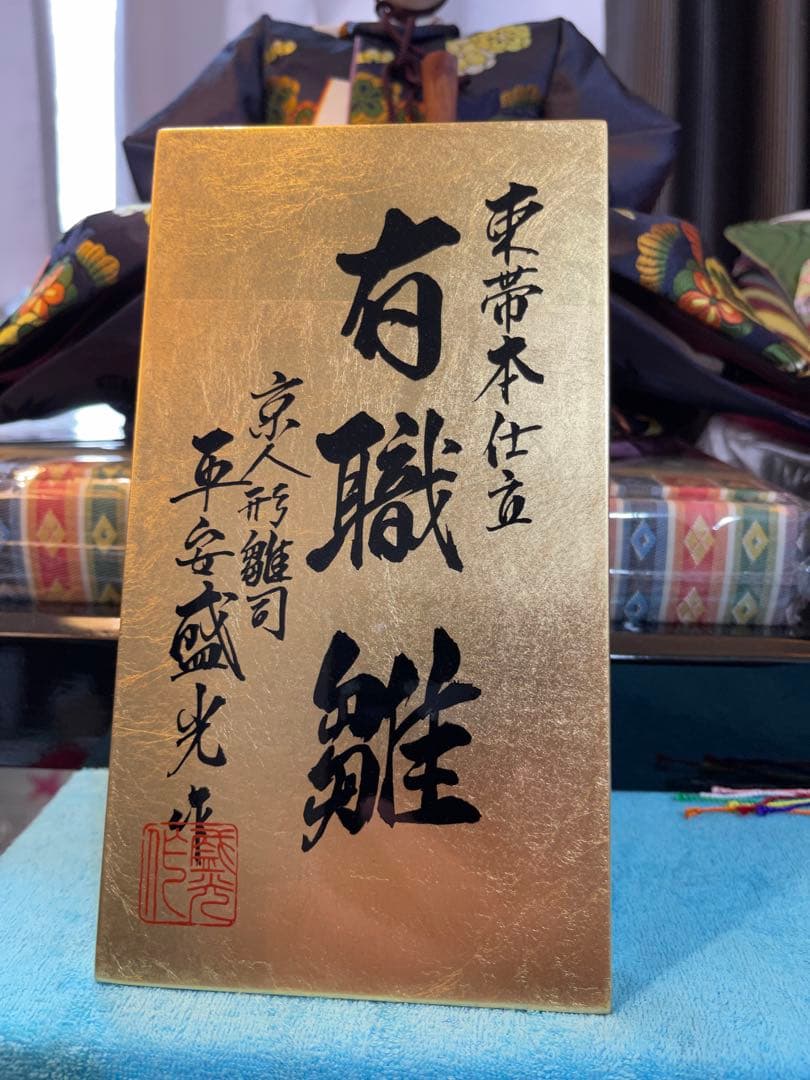 束帯本仕立
有職雛
京人形雛司
平安盛光作
盛光作